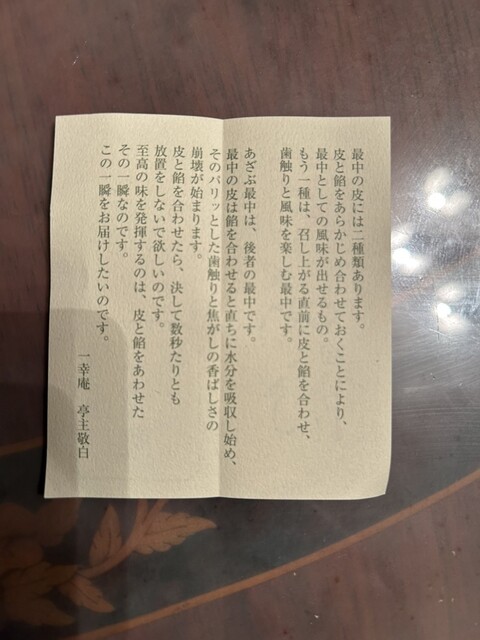 最中の皮には二種類あります。
皮と餡をあらかじめ合わせておくことにより、
最中としての風味が出せるもの。
もう一種は、召し上がる直前に皮と餡を合わせ、
歯触りと風味を楽しむ最中です。
あざぶ最中は、後者の最中です。
最中の皮は餡を合わせると直ちに水分を吸収し始め、
そのパリッとした歯触りと焦がしの香ばしさの
崩壊が始まります。
皮と餡を合わせたら、決して数秒たりとも
放置をしないで欲しいのです。
至高の味を発揮するのは、皮と餡をあわせた
その一瞬なのです。
この一瞬をお届けしたいのです。
一幸庵 亭主敬白